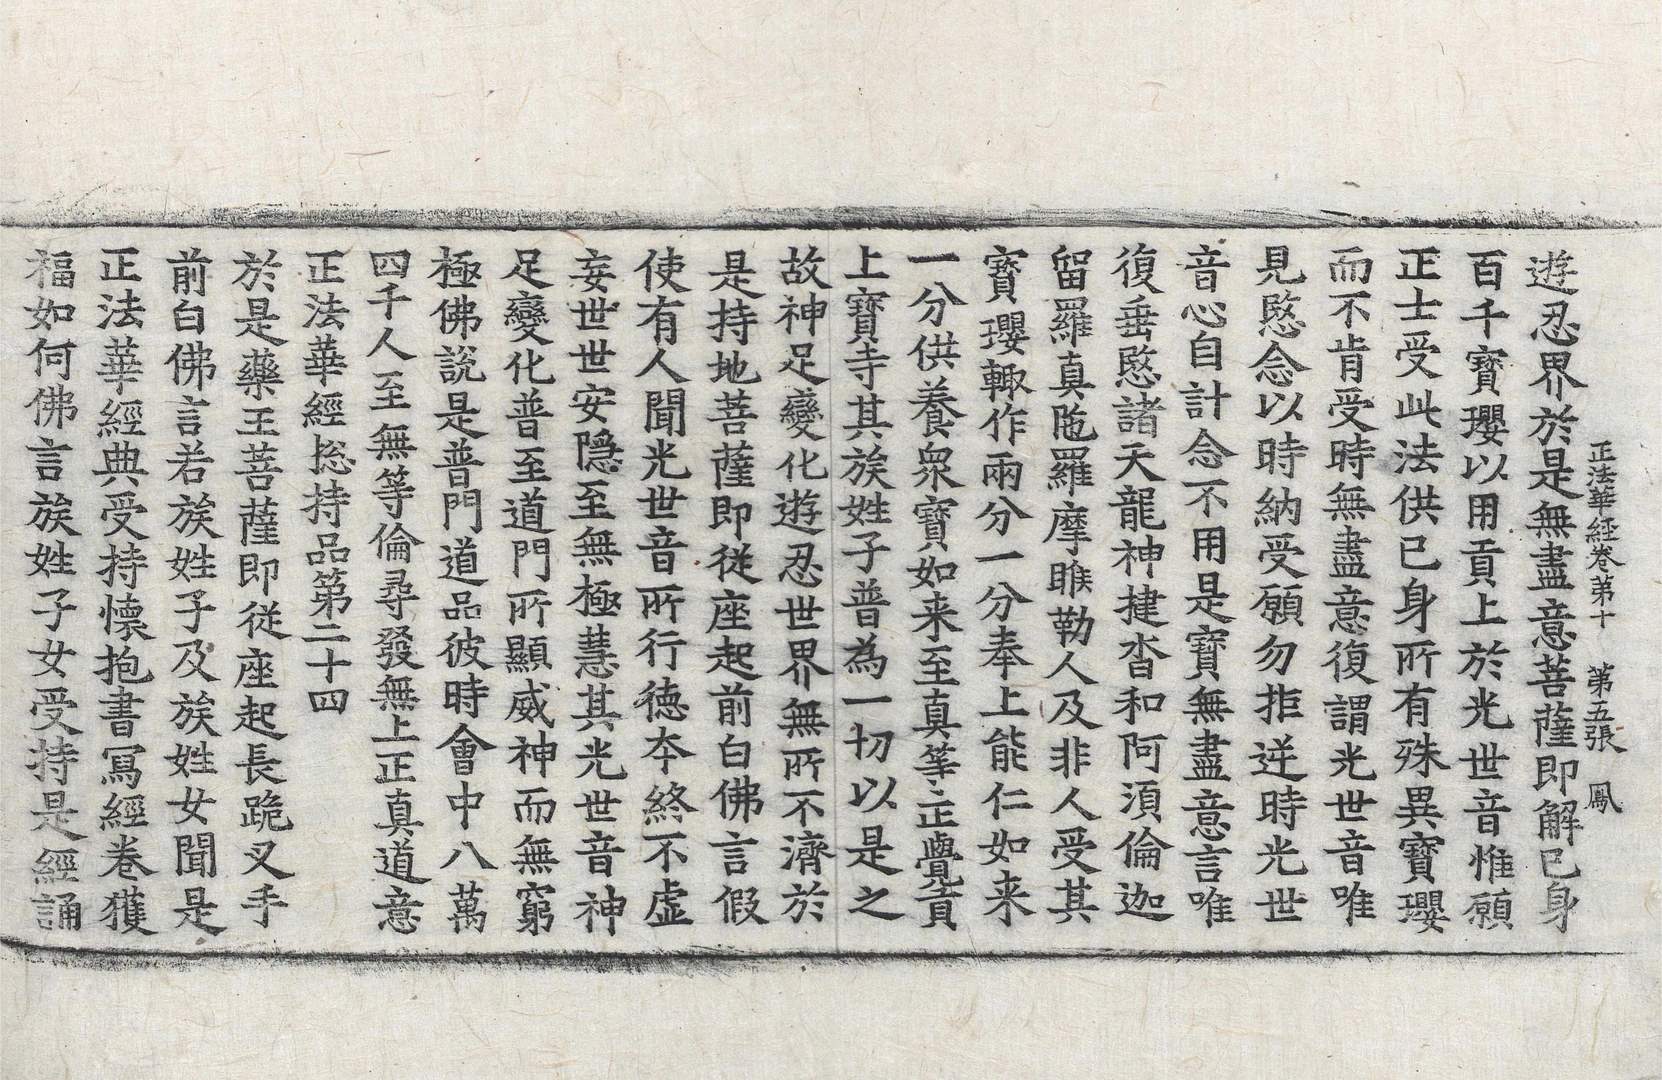 正法華經卷第十　第五張　鳳
遊忍界於是無盡意菩薩即解己身
百千寶瓔以用貢上於光世音惟願
正士受此法供己身所有殊異寶瓔
而不肯受時無盡意復謂光世音唯
見愍念以時納受願勿拒逆時光世
音心自計念不用是寶無盡意言唯
復垂愍諸天龍神揵沓和阿須倫迦
留羅真陁羅摩睺勒人及非人受其
寶瓔輙作兩分一分奉上能仁如来
一分供養衆寶如来至真等正覺貢
上寶寺其族姓子普為一切以是之
故神足變化遊忍世界無所不濟於
是持地菩薩即從座起前白佛言假
使有人聞光世音所行德夲終不虚
妄世世安隱至無極慧其光世音神
足變化普至道門所顯威神而無窮
極佛說是普門道品彼時會中八萬
四千人至無等倫尋發無上正真道意
正法華經捴持品第二十四
於是藥王菩薩即從座起長跪叉手
前白佛言若族姓子及族姓女聞是
正法華經典受持懷抱書寫經卷獲
福如何佛言族姓子女受持是經誦